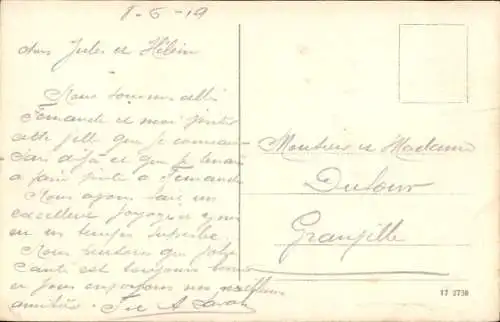 8-6-19
chers Jules et Hélène
Nous sommes allés
Fernande et moi visiter
cette ville que je connais-
sais déjà et que je tenais
à faire visiter à Fernande
Nous avons fait un
excellent voyage et nous
un temps superbe.
Nous que
santé est toujours bonne
et vous envoyons nos meilleures
amitiés.
Monsieur et Madame
Dufour
Granville
47 2738